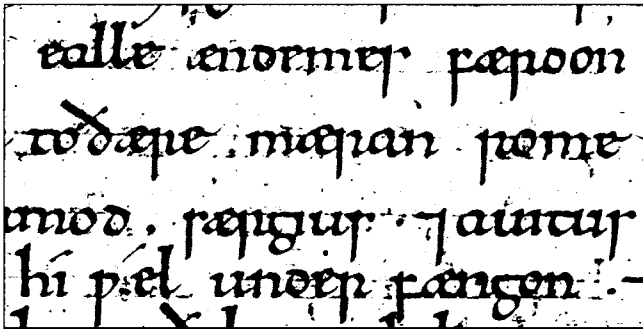 ealle ændemes færdon
to ðære mæran rome
amod . særgius · ⁊ auitus
hí ƿel under fængon .